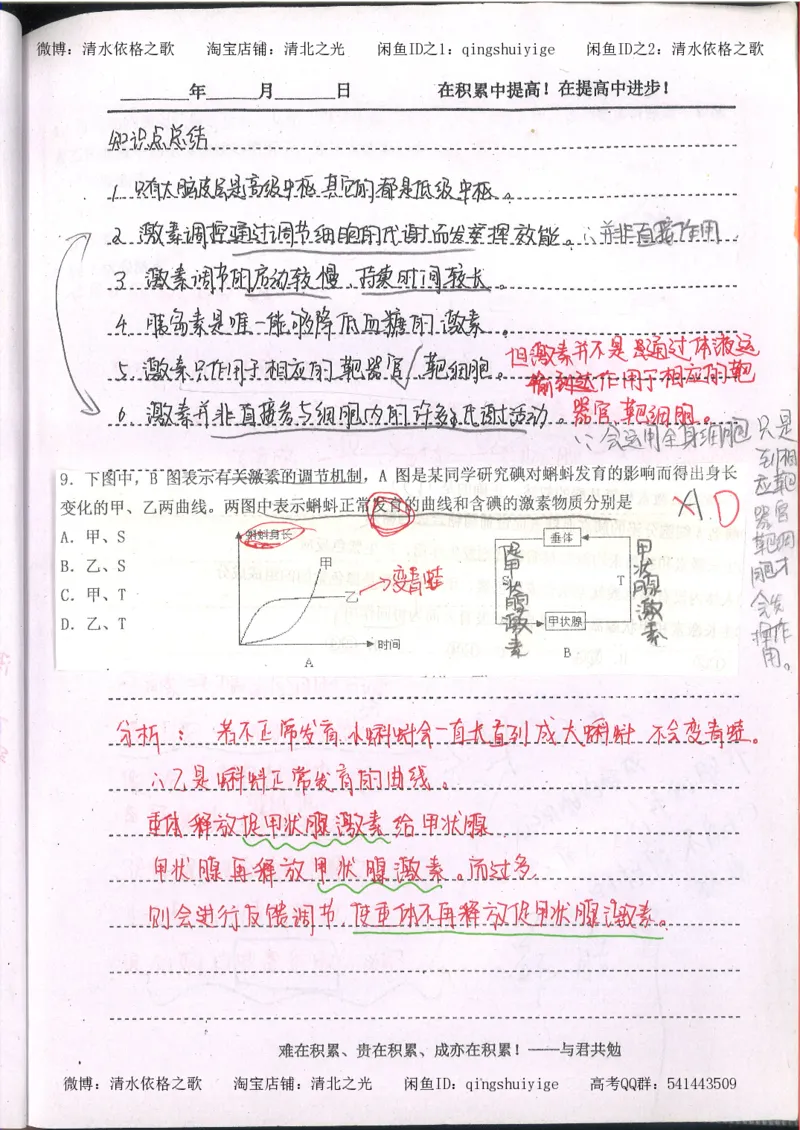 微博：清水依格之歌 淘宝店铺：清北之光 闲鱼ID之1：qingshuiyige 闲鱼ID之2：清水依格之歌
年 月 日 在积累中提高！在提高中进步！
知识点总结
1. 只有大脑皮层是高级中枢 其它的都是低级中枢。
2. 激素调控通过调节细胞的代谢而发挥效能。∴并非直接作用
3. 激素调节的启动较慢、持续时间较长。
4. 胰岛素是唯一能够降低血糖的激素。
5. 激素只作用于相应的靶器官/靶细胞。
但激素并不是通过体液运输到达作用于相应的靶器官 靶细胞。
6. 激素并非直接参与细胞内的许多代谢活动。
∵会运用全身细胞 只是到相应靶器官靶细胞才会发挥作用。
9. 下图中，B 图表示有关激素的调节机制，A 图是某同学研究碘对蝌蚪发育的影响而得出身长
变化的甲、乙两曲线。两图中表示蝌蚪正常发育的曲线和含碘的激素物质分别是
A D
A．甲、S
B．乙、S
C．甲、T
D．乙、T
蝌蚪身长
甲
乙
变青蛙
时间
A
垂体
S
促甲状腺激素
T
甲状腺激素
甲状腺
B
分析：若不正常发育 小蝌蚪会一直长直到成大蝌蚪 不会变青蛙。
∴乙是蝌蚪正常发育的曲线。
垂体释放促甲状腺激素给甲状腺
甲状腺再释放甲状腺激素。而过多
则会进行反馈调节，使垂体不再释放促甲状腺激素。
难在积累、贵在积累、成亦在积累！——与君共勉
微博：清水依格之歌 淘宝店铺：清北之光 闲鱼ID：qingshuiyige 高考QQ群：541443509